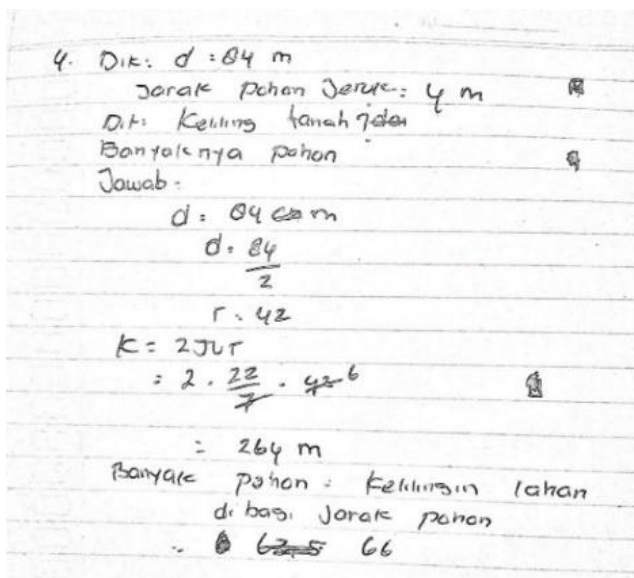 4. Dik: d = 84 m
Jarak Pohon Jeruk: 4 m
Dit: Keliling tanah
Banyaknya pohon
Jawab:
d: 84 m
d: 84/2
r: 42
K = 2πr
= 2 . 22/7 . 42 6
= 264 m
Banyak pohon : Kelilingin lahan
di bagi Jarak Pohon
66